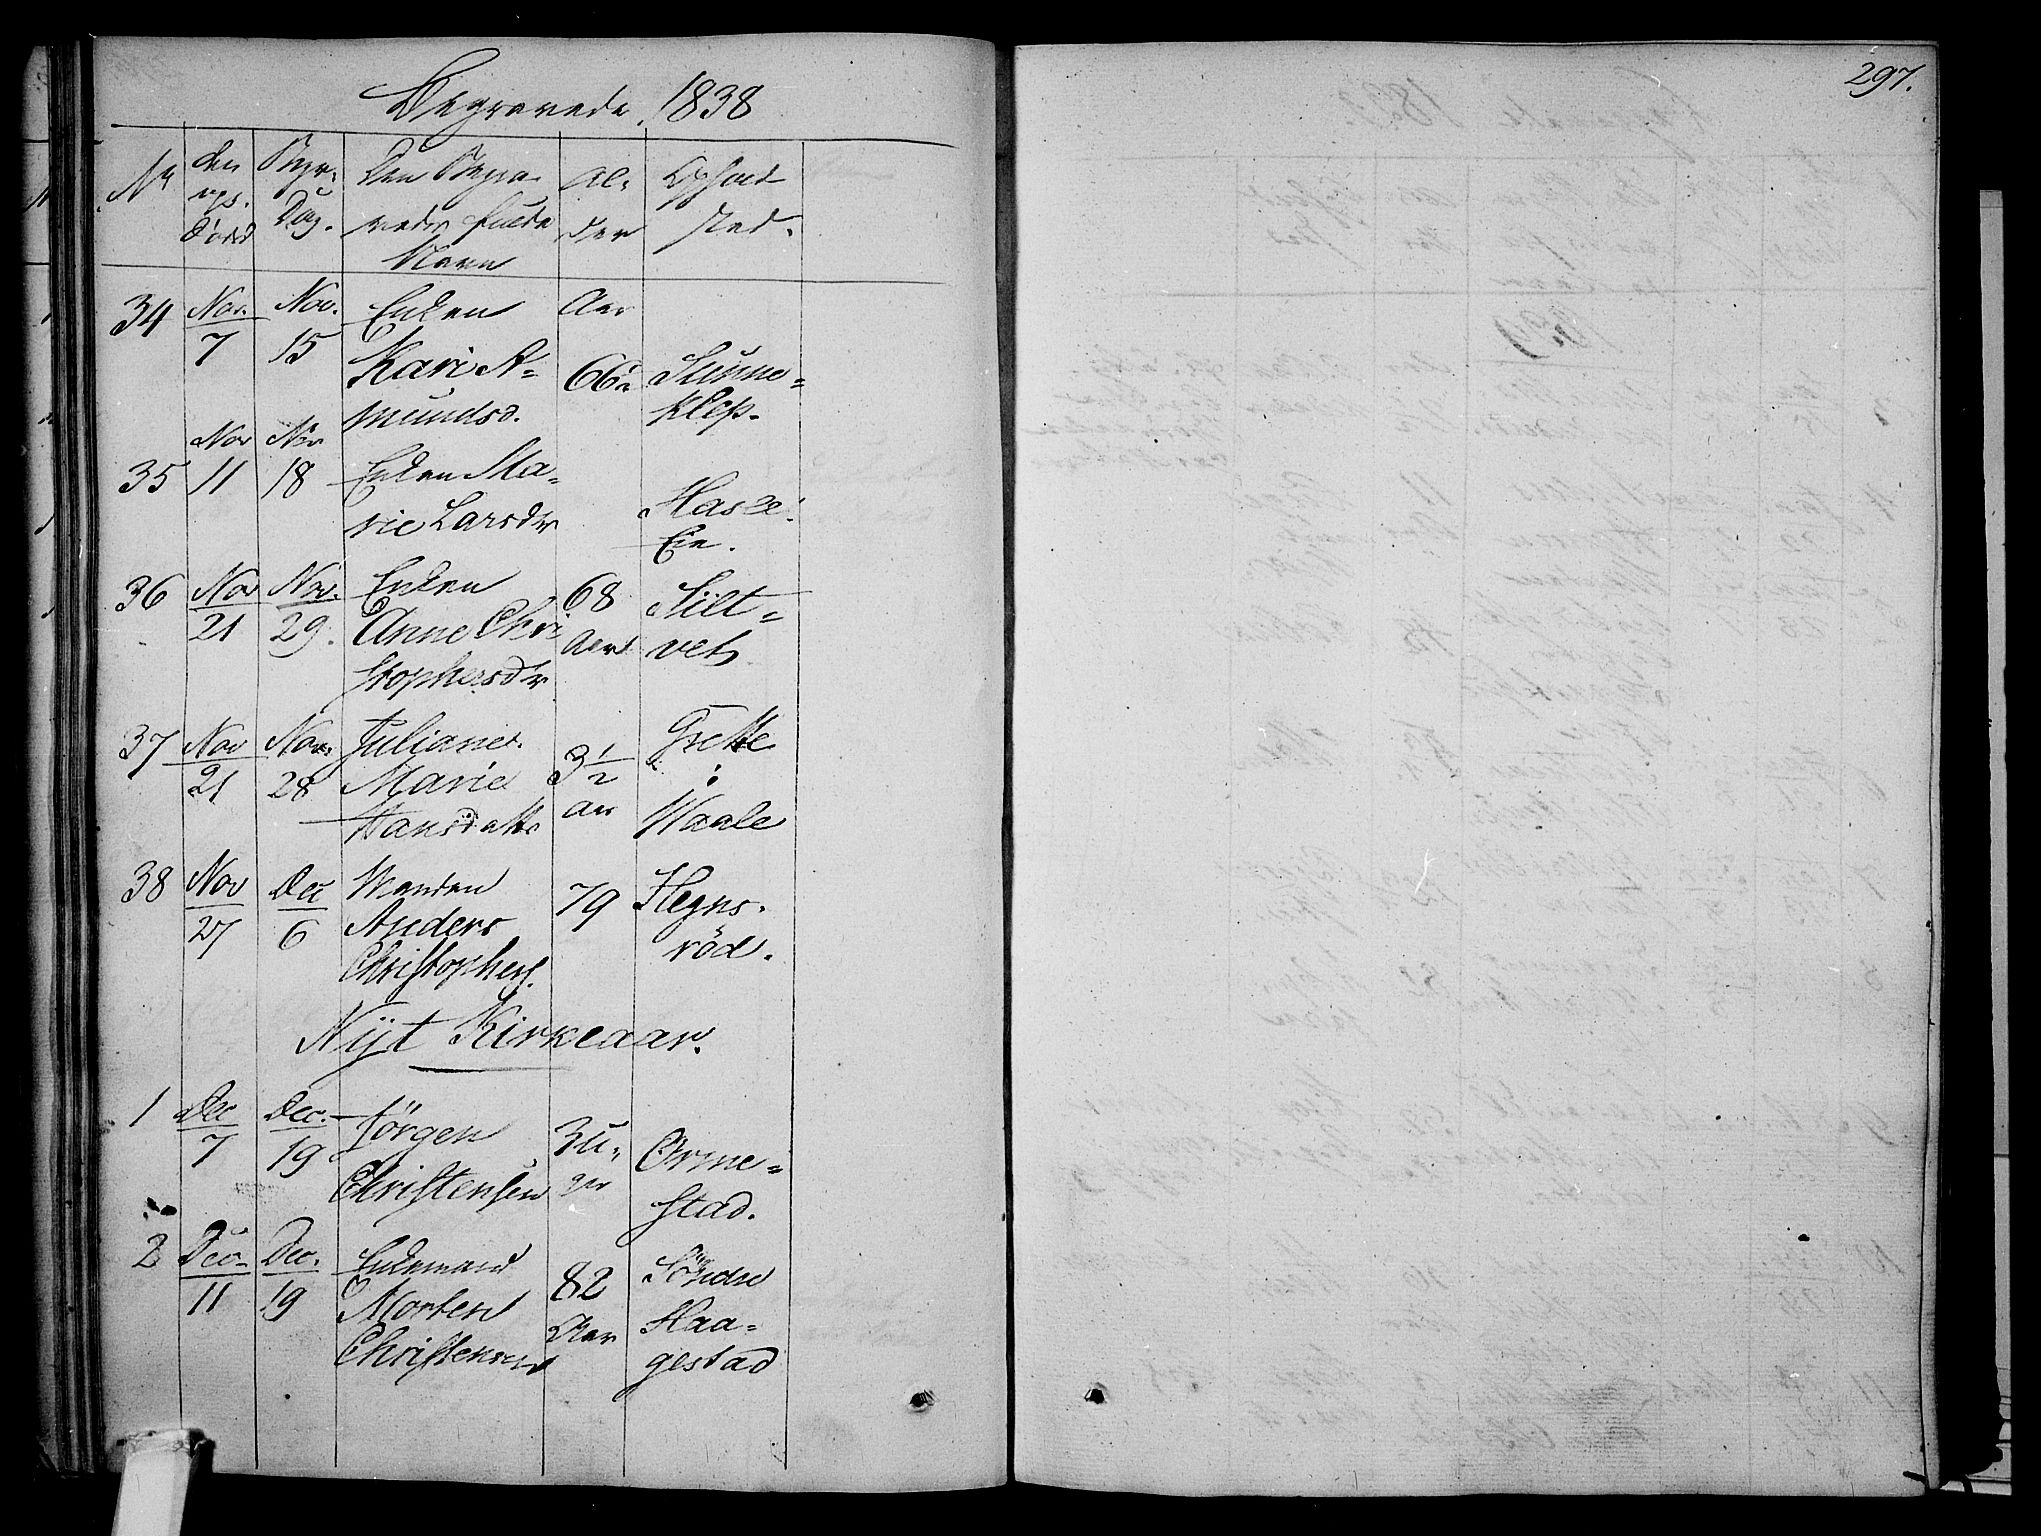 297.
Begravede 1838
No den ops. Død Begr. Dag. Den Begra- vedes fulde Navn Al- der Ophold sted.
34 Nov. 7 Nov. 15 Enken Kari A= mundsd. Aar 66 Stunne= klep.
35 Nov 11 Nov 18 Enken Ma- rie Larsdr Hasle Eie.
36 Nov 21 Nov. 29. Enken Anne Chri stophersdr 68 Aar Silt= vet
37 Nov 21 Nov. 28 Juliane Marie Hansdatter 3 1/2 Aar Grette i Waale
38 Nov 27 Dec 6 Manden Anders Christophers. 79 Hegns- röd.
Nÿt Kirkeaar.
1 Dec 7 Dec. 19 Jörgen Christensen 3 U- ger Orme= stad.
2 Dec. 11 Dec. 19 Enkemand Morten Christensen 82 Aar Söndre Haa= gestad